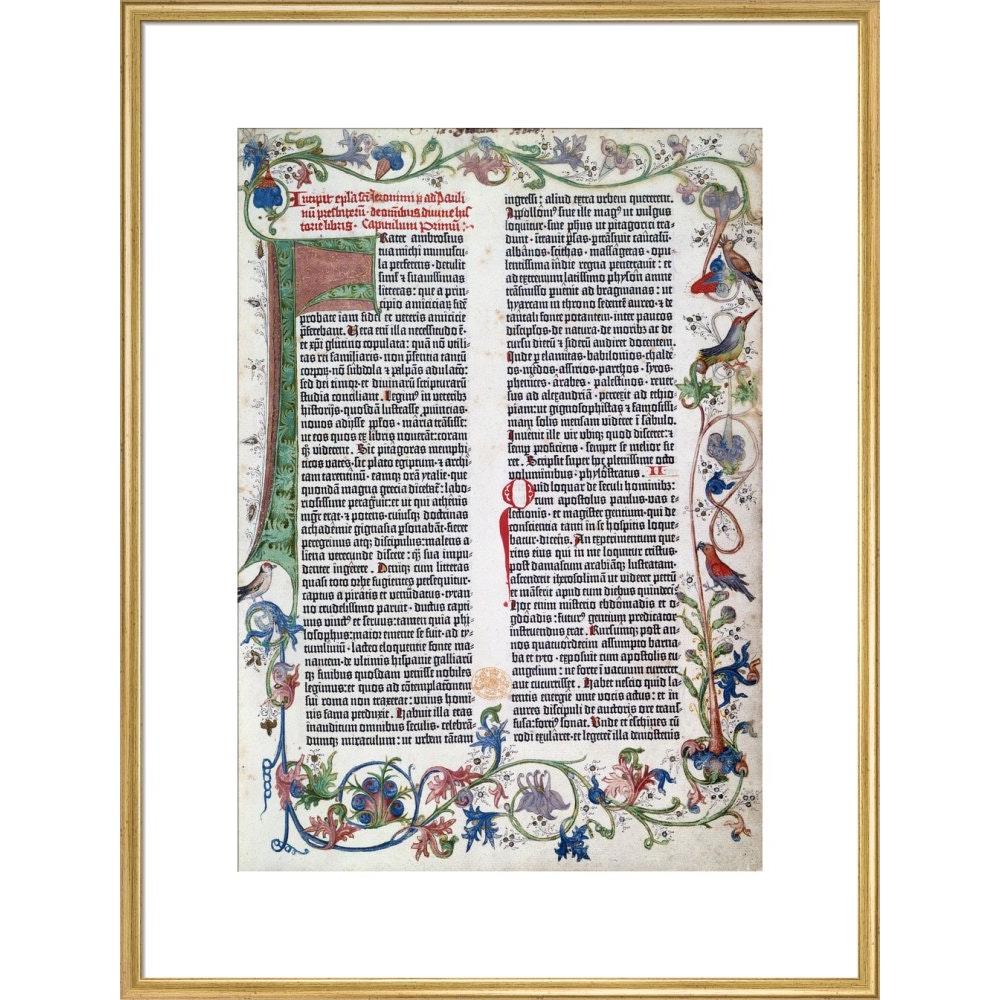 Incipit epłaa sctī Jeronimi p̄ ad Pauli
nū presbiterū · de omnibus diuine his
torie libris · Capitulum Primū :·
Frater ambrosius
tua michi munuscu
la preferens · detulit
simł et suauissimas
litteras : que a prin-
cipio amiciciar̄ fidē
probate iam fidei et veteris amicicie
p̄ferebant. Vera em̄ illa necessitudo ē·
et xp̄i glutino copulata : quā nō vtili-
tas rei familiaris · non p̄sentia tantū
corporū · nō subdola et palpās adulatō :
sed dei timor et diuinarū scripturarū
studia conciliant. Legim⁹ in veterib⁹
historijs · quosdā lustrasse puincias ·
nouos adijsse pplos · maria trāsisse :
ut eos quos ex libris nouerant : coram
q̄ viderent. Sic pitagoras memphi-
ticos vates · sic plato egiptum · et archi-
tam tarentinū · eamq̄ oram ytalie · que
quondā magna grecia dicebat̄ : labo-
riosissime peragrauit : et ut qui athenis
mgr̄ erat · et potens · cuiusq̄ doctrinas
achademie gignasia psonabāt · fieret
peregrinus atq̄ discipulus : malens a-
liena verecunde discere : q̄ sua impu-
denter ingerere. Deniq̄ cum litteras
quasi toto orbe fugientes persequitur ·
captus a piratis et venūdatus · tyran-
no crudelissimo paruit · ductus capti-
uus vinct⁹ et seruus : tamen quia phi-
losophus : maior emente se fuit · ad ty-
tumliuiū · lacteo eloquentie fonte ma-
nantem · de vltimis hispanie galliarū
q̄ finibus · quosdam venisse nobiles
legimus : et quos ad cōtemplacōnem
sui roma non traxerat : vnius homi-
nis fama perduxit. Habuit illa etas
inauditum omnibus seculis · celebrā-
dumq̄ miraculum : ut vrbem tātam
ingressi : aliud extra vrbem quererent.
Apolloni⁹ siue ille mag⁹ ut vulgus
loquitur · siue phūs · ut pitagorici tra-
dunt · intrauit psas · ptrāsiuit caucasū ·
albanos · scithas · massagetas · opu-
lentissima indie regna penetrauit : et
ad extremum latissimo physon amne
trāsmisso puenit ad bragmanas : ut
hyarcam in throno sedentē aureo · et de
tantali fonte potantem · inter paucos
discipulos · de natura · de moribus · ac de
cursu dierū et siderū audiret docentem.
Inde p elamitas · babilonios · chalde-
os · medos · assirios · parthos · syros ·
phenices · arabes · palestinos · reuer-
sus ad alexandriā · perrexit ad ethio-
piam : ut gignosophistas et famosissi-
mam solis mensam videret in sabulo.
Inuenit ille vir vbiq̄ quod disceret : et
semp proficiens · semper se melior fie-
ret. Scripsit super hoc plenissime octo
voluminibus · phylostratus. II
Quid loquar de seculi hominibz :
cum apostolus paulus · vas e-
lectionis · et magister gentium · qui de
conscientia tanti in se hospitis loque-
batur · dicens. An experimentum que-
ritis eius qui in me loquitur cristus.
Post damascum arabiāq̄ lustratam ·
ascendit iherosolimā ut videret petrū
et māsit apud eum diebus quindeci.
Hoc enim misterio ebdomadis et o-
gdoadis : futur⁹ gentium predicator
instruendus erat. Rursumq̄ post an-
nos quatuordecim assumpto barna-
ba et tyto · exposuit cum apostolis eu-
angelium : ne forte ī vacuum curreret
aut cucurrisset. Habet nescio quid la-
tentis energie viue vocis actus : et in
aures discipuli de auctoris ore trans-
fusa : forti⁹ sonat. Vnde et eschines cū
rodi exularet · et legeret illa demostenis